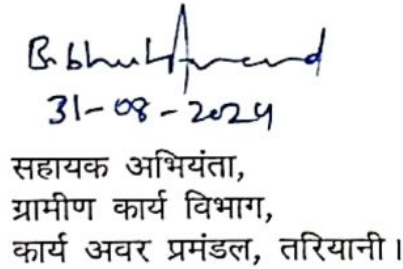 31-08-2024
सहायक अभियंता,
ग्रामीण कार्य विभाग,
कार्य अवर प्रमंडल, तरियानी।